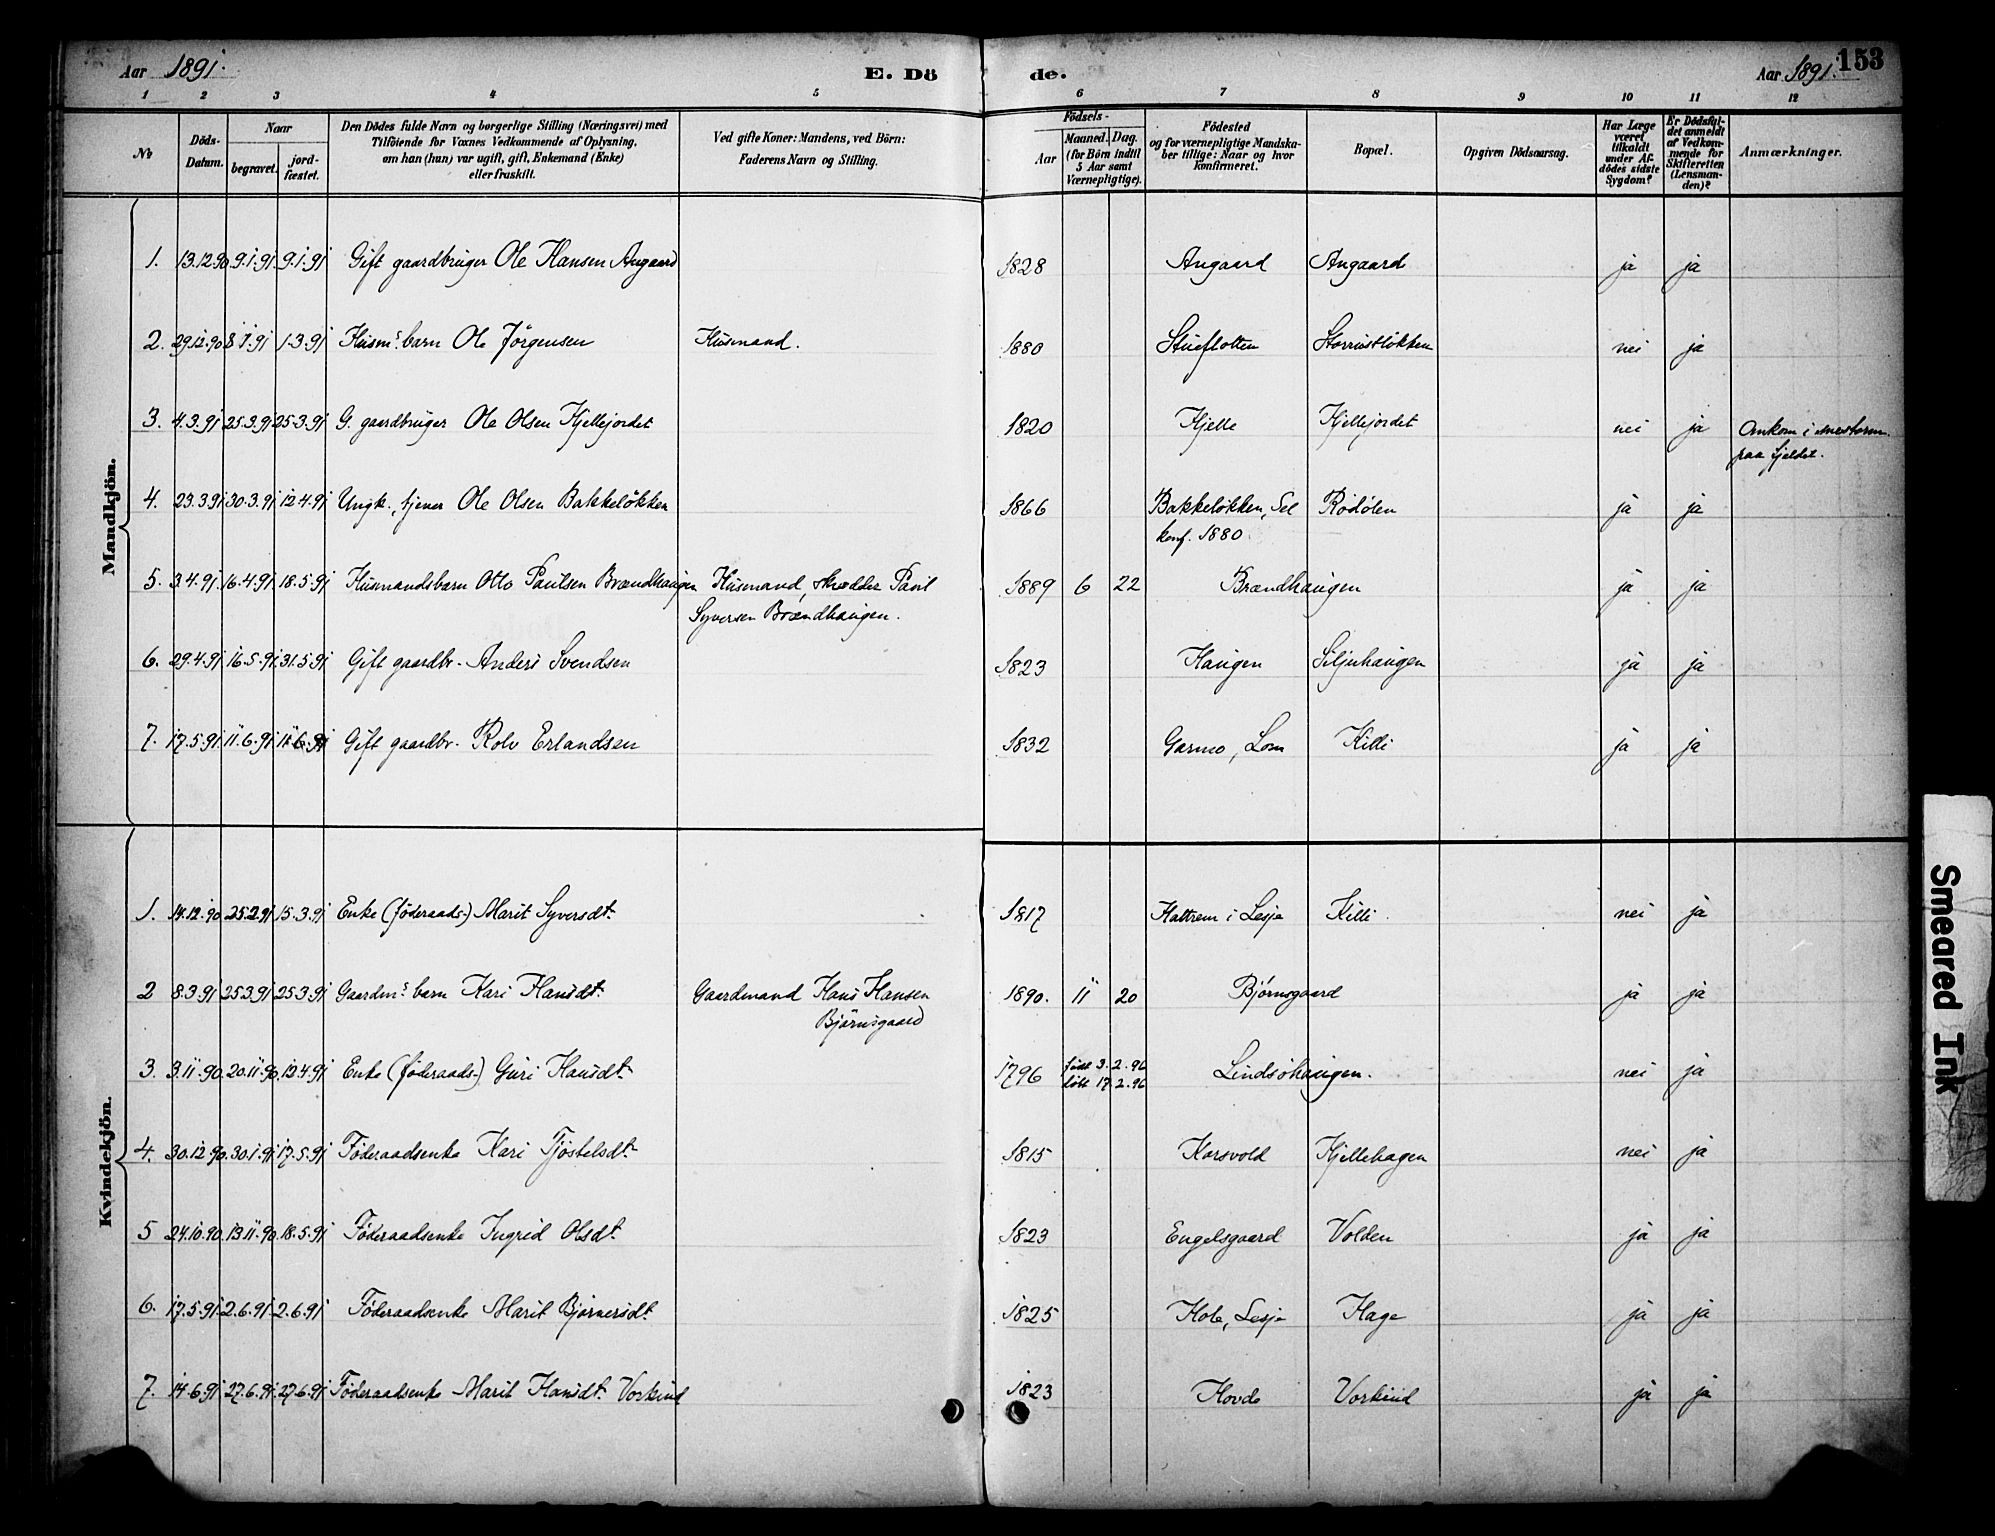 Aar 1891. E. Dö de. Aar 1891. 153
1 2 3 4 5 6 7 8 9 10 11 12
No
Döds-Datum.
Naar
begravet.
jord-fæstet.
Den Dödes fulde Navn og borgerlige Stilling (Næringsvei) med
Tilföiende for Voxnes Vedkommende af Oplysning,
om han (hun) var ugift, gift, Enkemand (Enke)
eller fraskilt.
Ved gifte Koner: Mandens, ved Börn:
Faderens Navn og Stilling.
Födsels-
Aar
Maaned. Dag.
(for Börn indtil
5 Aar samt
Værnepligtige).
Födested
og for værnepligtige Mandska-
ber tillige: Naar og hvor
konfirmeret.
Bopæl.
Opgiven Dödsaarsag.
Har Læge
været
tilkaldt
under Af-
dödes sidste
Sygdom?
Er Dödsfal-
det anmeldt
af Vedkom-
mende for
Skifteretten
(Lensman-
den)?
Anmærkninger.
Mandkjön.
1. 13.12.90 9.1.91 9.1.91 Gift gaardbruger Ole Hansen Angaard 1828 Angaard Angaard ja ja
2. 29.12.90 8.1.91 1.3.91 Husms. barn Ole Jörgensen Husmand. 1880 Stueflotten Storrustløkken nei ja
3. 4.3.91 25.3.91 25.3.91 G. gaardbruger Ole Olsen Kjellejordet 1820 Kjelle Kjellejordet nei ja Omkom i snestorm
paa fjeldet.
4. 23.3.91 30.3.91 12.4.91 Ungk., tjener Ole Olsen Bakkeløkken 1866 Bakkeløkken, Sel Rødølen ja ja
konf. 1880
5. 3.4.91 16.4.91 18.5.91 Husmandsbarn Otto Paulsen Brændhaugen Husmand, skrædder Paul 1889 6 22 Brændhaugen ja ja
Syversen Brændhaugen.
6. 29.4.91 16.5.91 31.5.91 Gift gaardbr. Anders Svendsen 1823 Haugen Siljuhaugen ja ja
7. 17.5.91 11.6.91 11.6.91 Gift gaardbr. Rolv Erlandsen 1832 Garmo, Lom Killi ja ja
Kvindekjön.
1. 14.12.90 25.2.91 15.3.91 Enke (føderaads-) Marit Syversdt. 1817 Hattrem i Lesje Killi. nei ja
2 8.3.91 25.3.91 25.3.91 Gaardms. barn Kari Hansdt. Gaardmand Hans Hansen 1890. 11 20 Bjørnsgaard ja ja
Bjørnsgaard
3. 3.11.90 20.11.90 12.4.91 Enke (føderaads-) Guri Hansdt. 1796 født 3.2.96 Lindsøhaugen. nei ja
døbt 17.2.96
4. 30.12.90 30.1.91 17.5.91 Føderaadsenke Kari Tjøstelsdt. 1815 Korsvold Kjellehagen nei ja
5 24.10.90 13.11.90 18.5.91 Føderaadsenke Ingrid Olsdt. 1823 Engelsgaard Volden ja ja
6. 17.5.91 2.6.91 2.6.91 Føderaadsenke Marit Bjørnersdt. 1825 Hole, Lesje Hage ja ja
7. 14.6.91 27.6.91 27.6.91 Føderaadsenke Marit Hansdt. Vorkind 1823 Hovde Vorkind ja ja
Smeared Ink